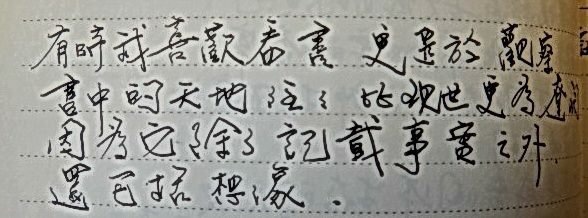 有時我喜歡看書 更是於觀摩
書中的天地往々比現世更為遼闊
因為它除了記載事實之外
還包括想像．